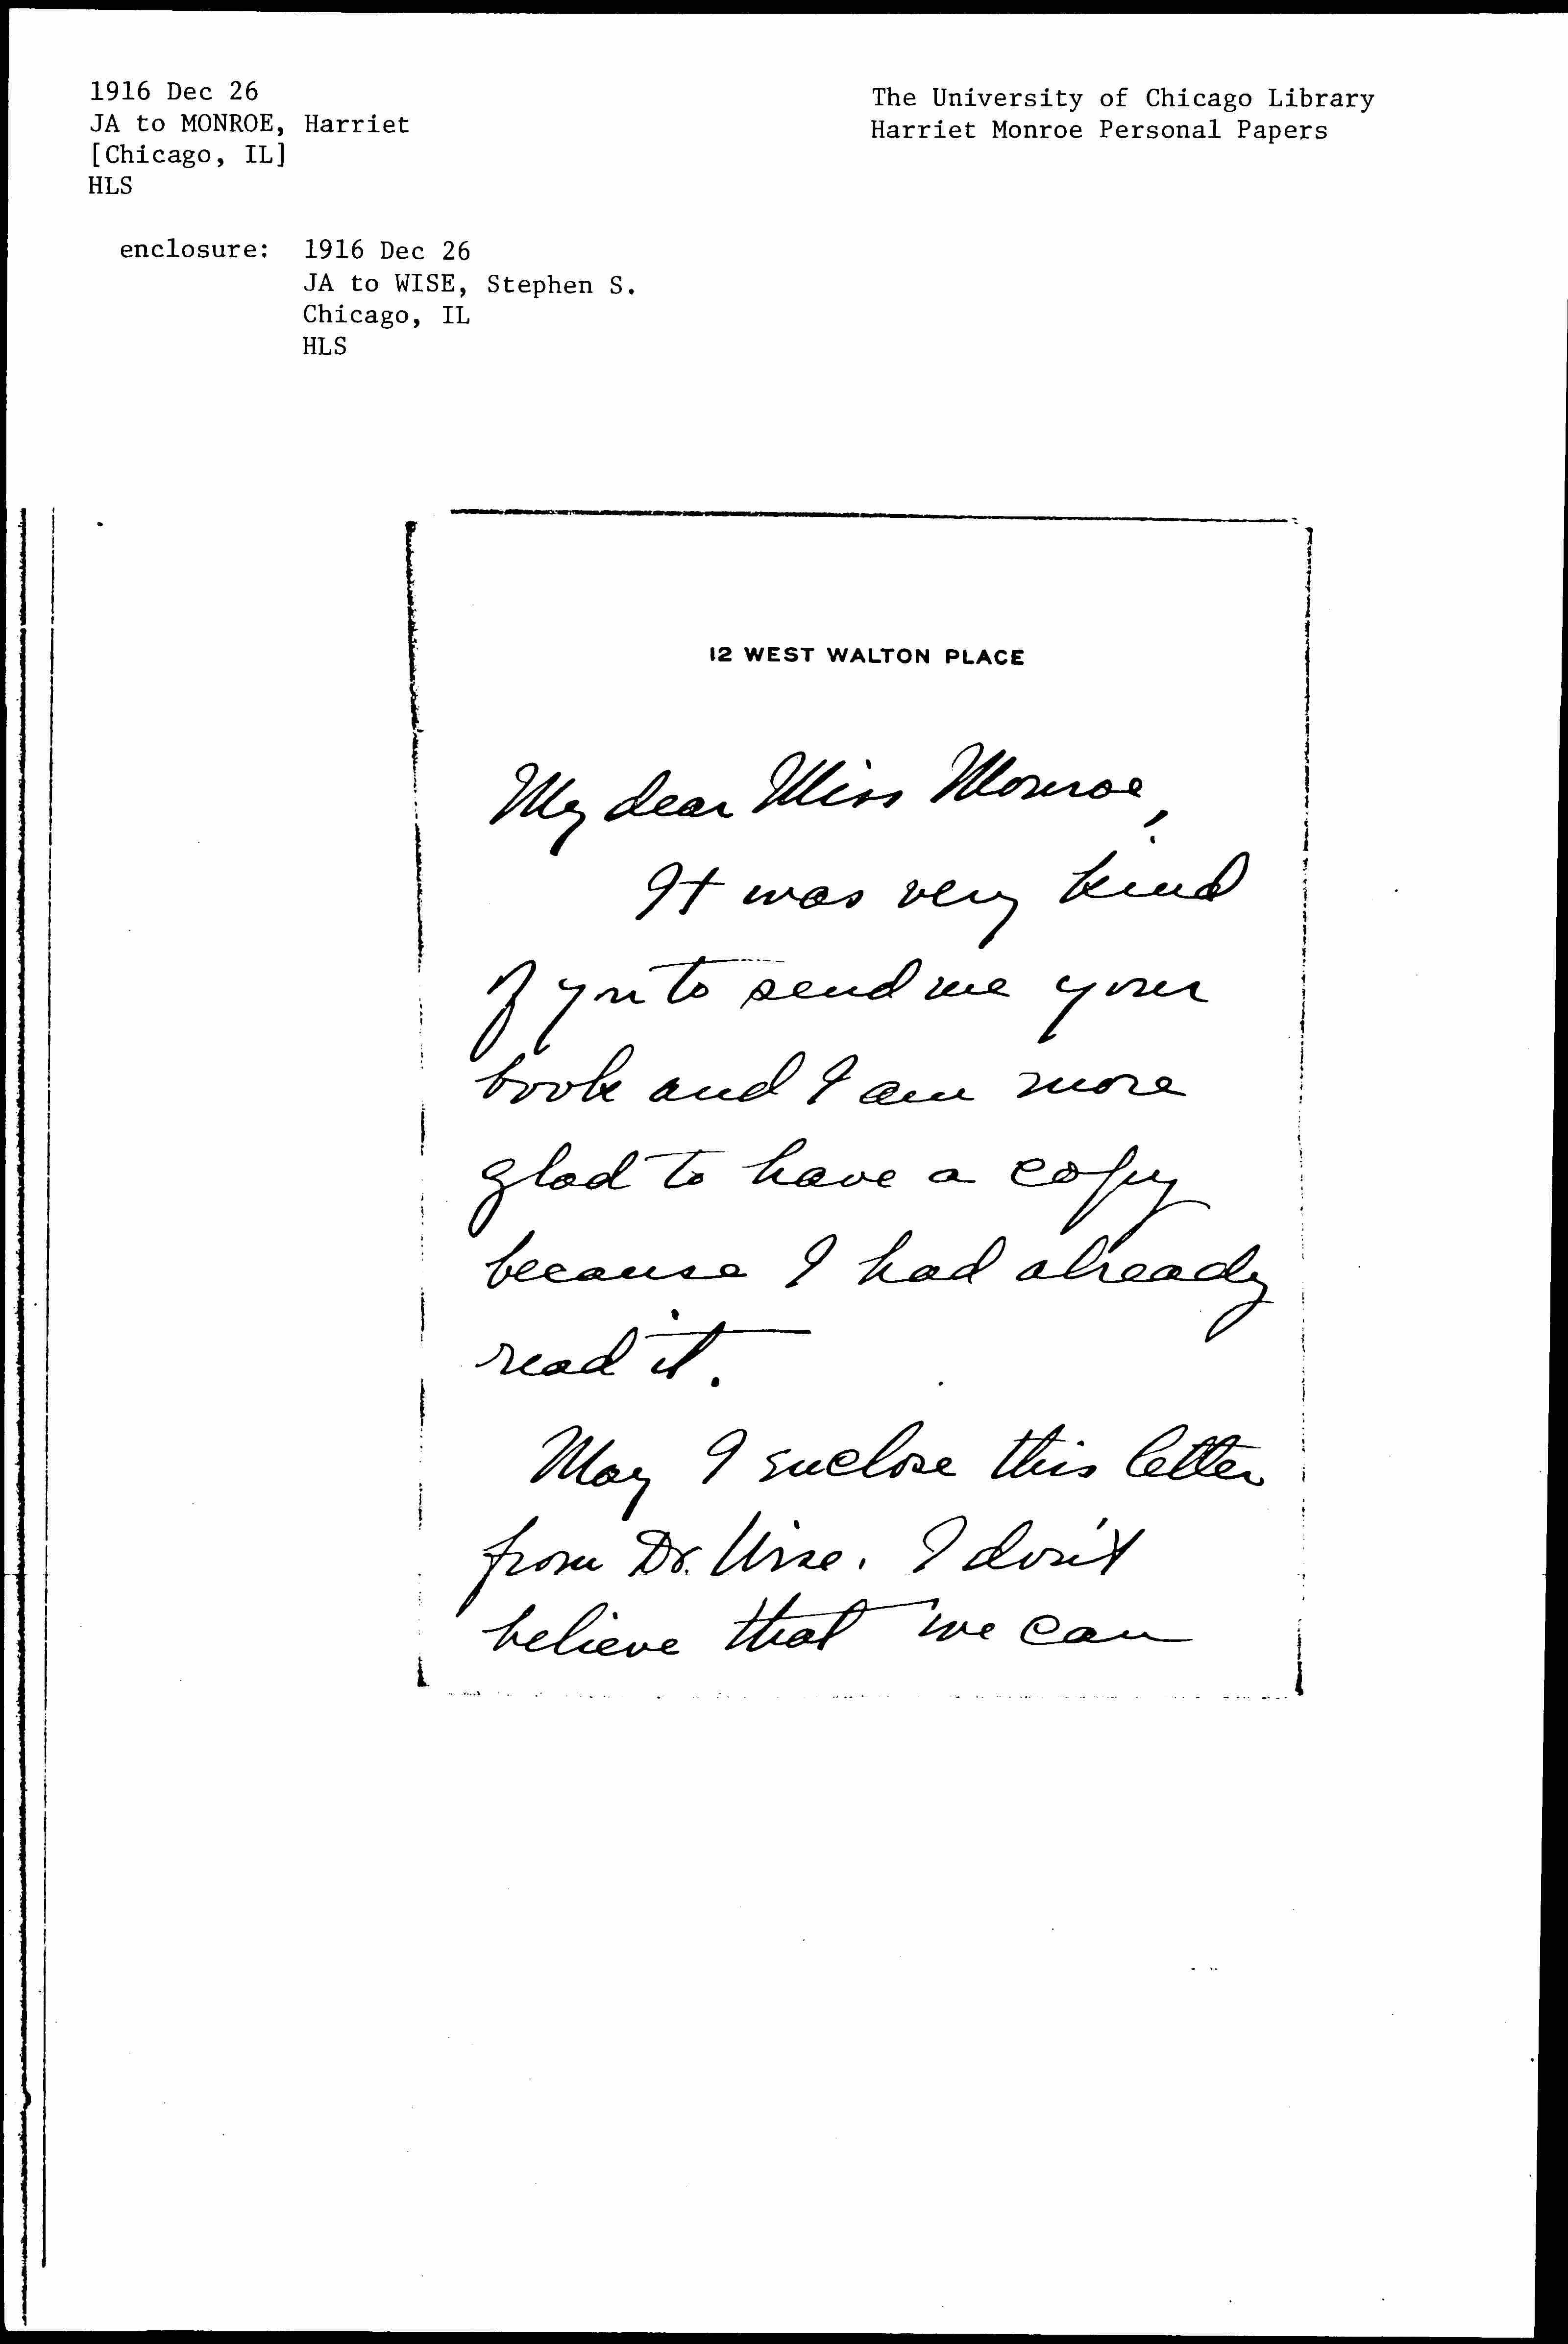 1916 Dec 26
JA to MONROE, Harriet
[Chicago, IL]
HLS
The University of Chicago Library
Harriet Monroe Personal Papers
enclosure: 1916 Dec 26
JA to WISE, Stephen S.
Chicago, IL
HLS
12 WEST WALTON PLACE
My dear Miss Monroe,
It was very kind
of you to send me your
book and I am more
glad to have a copy
because I had already
read it.
May I enclose this letter
from Dr. Wise. I don't
believe that we can